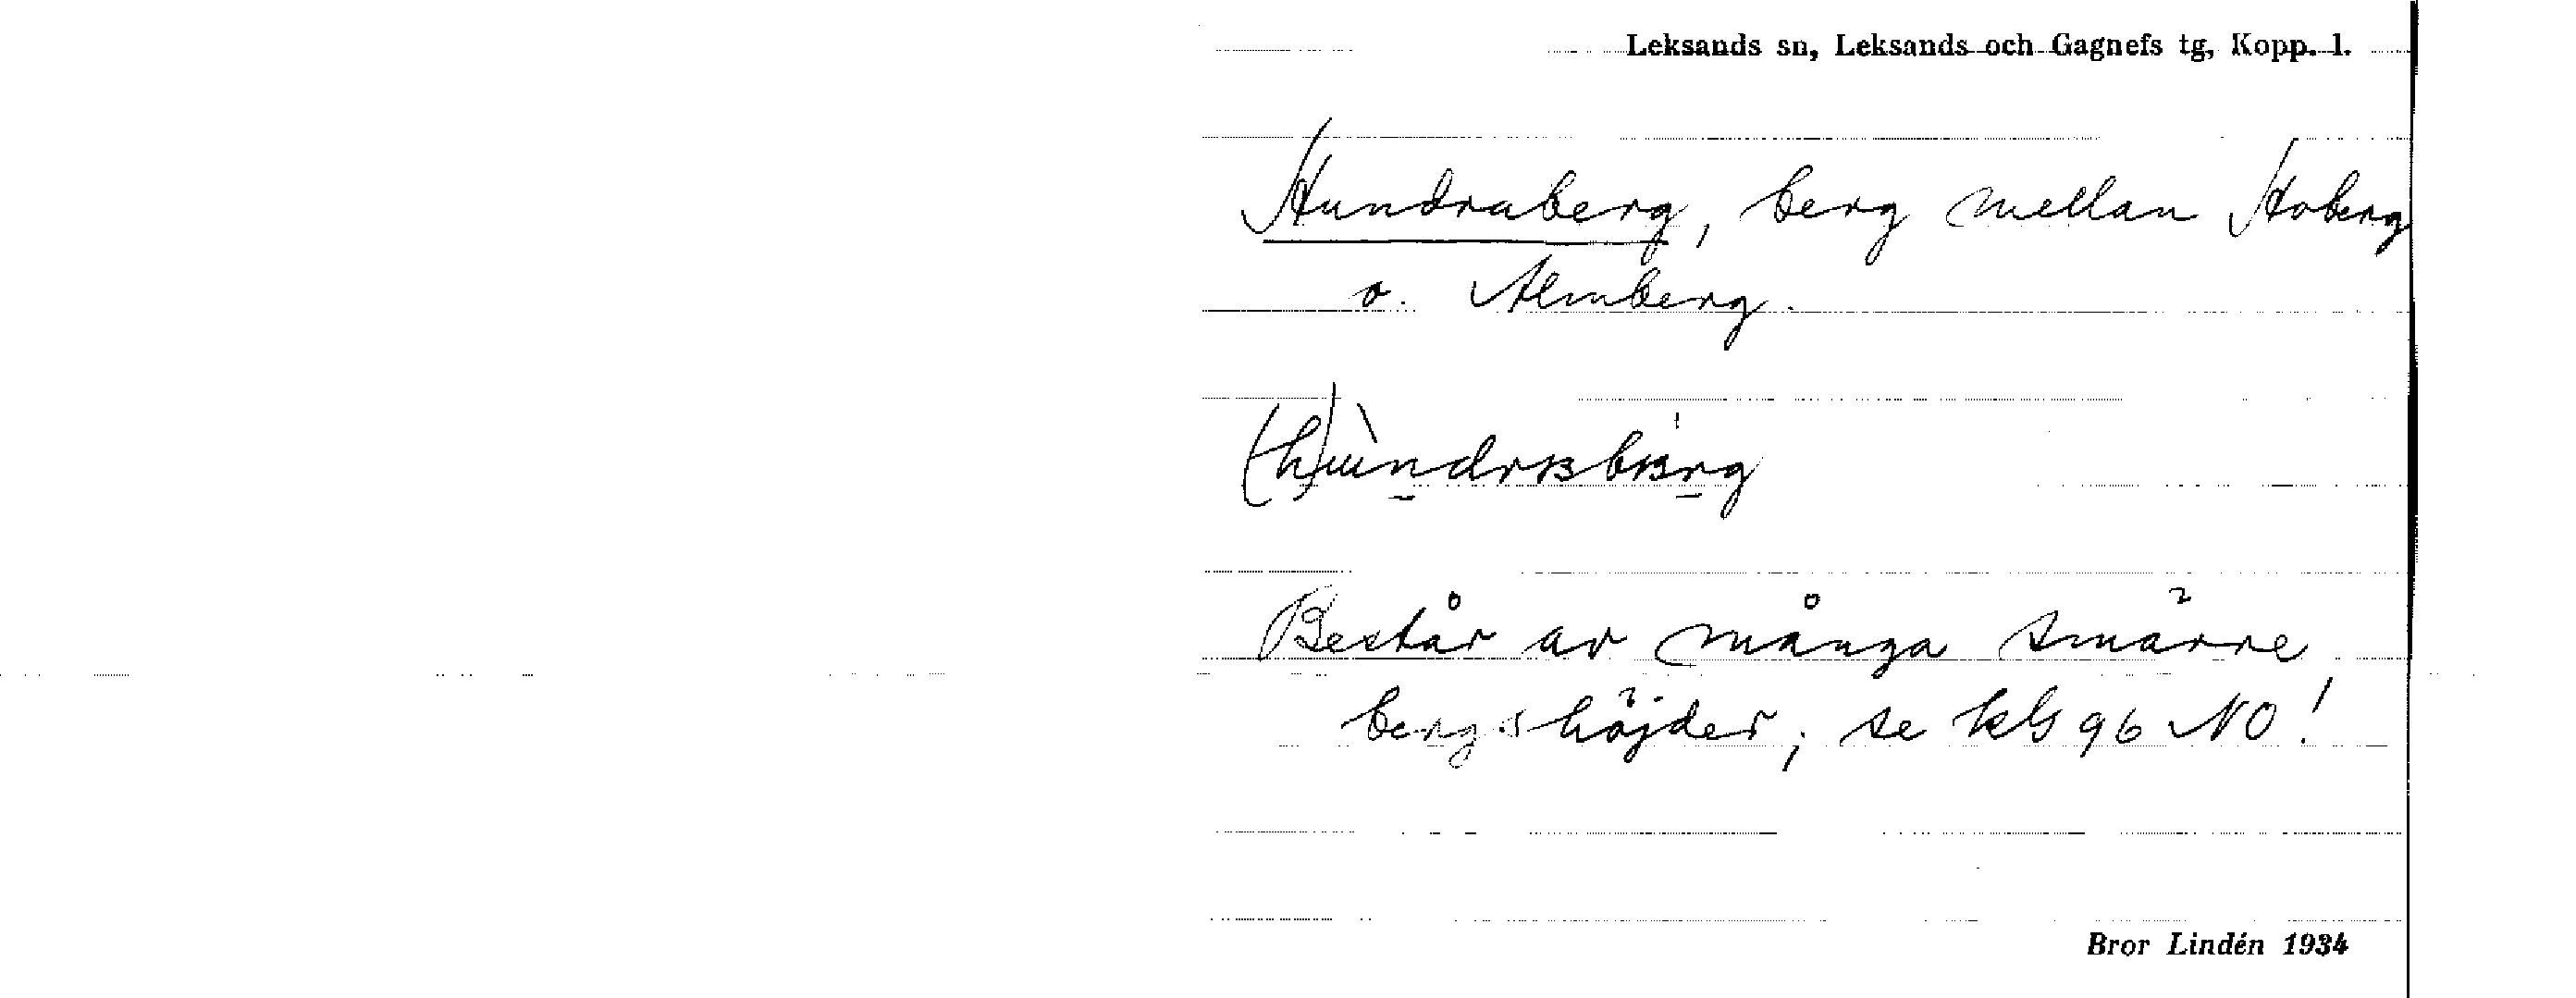 Leksands sn, Leksands och Gagnefs tg, Kopp. l.
Hundraberg, berg mellan Hoberg
o. Almberg.
Består av många smärre
bergshöjder; se kbl 96 NO!
Bror Lindén 1934